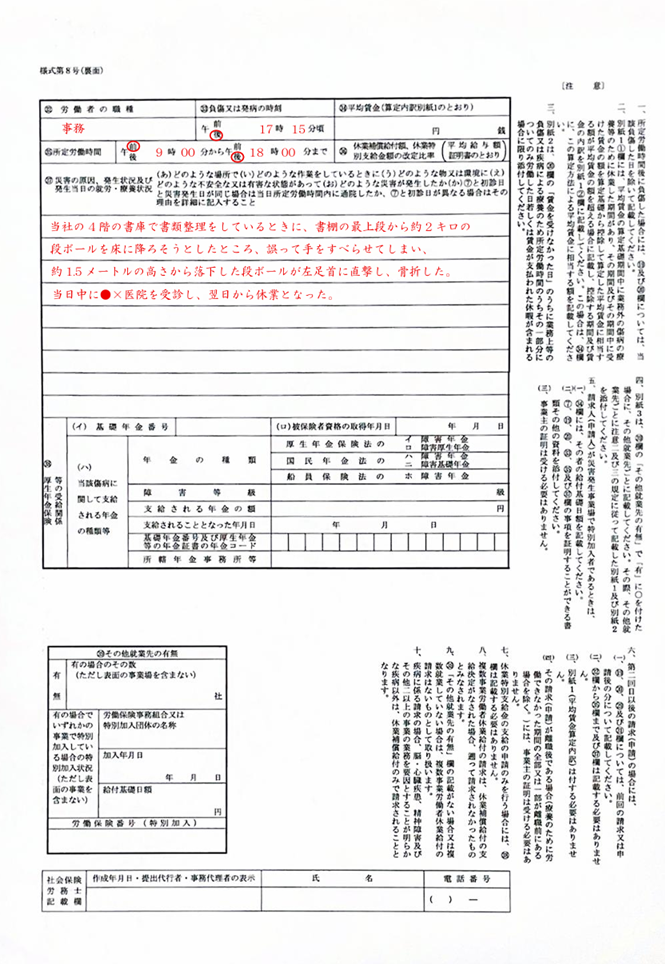 様式第8号(裏面)
㉜ 労働者の職種
㉝負傷又は発病の時刻
㉞平均賃金(算定内訳別紙1のとおり)
事務
午 前 後 17 時 15 分頃
円 銭
㉟所定労働時間
午 前 後 9 時 00 分から午 前 後 18 時 00 分まで
㊱ 休業補償給付額、休業特別支給金額の改定比率
(平均給与額証明書のとおり)
㊲災害の原因、発生状況及び発生当日の就労・療養状況
(あ)どのような場所で(い)どのような作業をしているときに(う)どのような物又は環境に(え)
どのような不安全な又は有害な状態があって(お)どのような災害が発生したか(か)⑦と初診日
と災害発生日が同じ場合は当日所定労働時間内に通院したか、⑦と初診日が異なる場合はその
理由を詳細に記入すること
当社の4階の書庫で書類整理をしているときに、書棚の最上段から約2キロの
段ボールを床に降ろそうとしたところ、誤って手をすべらせてしまい、
約1.5メートルの高さから落下した段ボールが左足首に直撃し、骨折した。
当日中に●×医院を受診し、翌日から休業となった。
㊳ 厚生年金保険等の受給関係
(イ) 基礎年金番号
(ロ)被保険者資格の取得年月日
年 月 日
(ハ)
当該傷病に
関して支給
される年金
の種類等
年金の種類
厚生年金保険法の
イ 障害年金
ロ 障害厚生年金
国民年金法の
ハ 障害年金
ニ 障害基礎年金
船員保険法の
ホ 障害年金
障害等級
級
支給される年金の額
円
支給されることとなった年月日
年 月 日
基礎年金番号及び厚生年金
等の年金証書の年金コード
所轄年金事務所等
㊴その他就業先の有無
有
無
有の場合のその数
(ただし表面の事業場を含まない)
社
有の場合で
いずれかの
事業で特別
加入してい
る場合の特
別加入状況
(ただし表
面の事業を
含まない)
労働保険事務組合又は
特別加入団体の名称
加入年月日
年 月 日
給付基礎日額
円
労働保険番号(特別加入)
社会保険
労務士
記載欄
作成年月日・提出代行者・事務代理者の表示
氏名
電話番号
( ) ―
〔注意〕
一、所定労働時間後に負傷した場合には、⑲及び⑳欄については、当
該負傷した日を除いて記載してください。
二、別紙1①欄には、平均賃金の算定基礎期間中に業務外の傷病の療
養等のため休業した期間があり、その期間及びその期間中に受
けた賃金の額を算定基礎から控除して算定した平均賃金に相当す
る額が平均賃金の額を超える場合に記載し、控除する期間及び賃
金の内訳を別紙1②欄に記載してください。この場合は、㉞欄
に、この算定方法による平均賃金に相当する額を記載してくださ
い。
三、別紙2は、⑳欄の「賃金を受けなかった日」のうちに業務上等の
負傷又は疾病による療養のため所定労働時間のうちその一部分に
ついてのみ労働した日若しくは賃金が支払われた休暇が含まれる
場合に限り添付してください。
四、別紙3は、㊴欄の「その他就業先の有無」で「有」に○を付けた
場合に、その他就業先ごとに記載してください。その際、その他就
業先ごとに注意二及び三の規定に従って記載した別紙1及び別紙2
を添付してください。
五、請求人(申請人)が災害発生事業場で特別加入者であるときは、
(一) ㉞欄には、その者の給付基礎日額を記載してください。
(二) ⑦、⑲、⑳、㉝、㉟及び㊲欄の事項を証明することができる書
類その他の資料を添付してください。
(三) 事業主の証明は受ける必要はありません。
六、第二回目以後の請求(申請)の場合には、
(一) ⑲、⑳、㉙及び㉚欄については、前回の請求又は申
請後の分について記載してください。
(二) ㉜欄から㉟欄まで及び㊲欄は記載する必要はありませ
ん。
(三) 別紙1(平均賃金算定内訳)は付する必要はありませ
ん。
(四) その請求(申請)が離職後である場合(療養のために労
働できなかった期間の全部又は一部が離職前にある
場合を除く。)には、事業主の証明は受ける必要はあ
りません。
七、休業特別支給金の支給の申請のみを行う場合には、㊳
欄は記載する必要はありません。
八、複数事業労働者休業給付の請求は、休業補償給付の支
給決定がなされた場合、遡って請求されなかったもの
とみなされます。
九、㊴「その他就業先の有無」欄の記載がない場合又は複
数就業していない場合は、複数事業労働者休業給付の
請求はないものとして取り扱います。
十、疾病に係る請求の場合、脳・心臓疾患、精神障害及び
その他二以上の事業の業務を要因とすることが明らか
な疾病以外は、休業補償給付のみで請求されることと
なります。